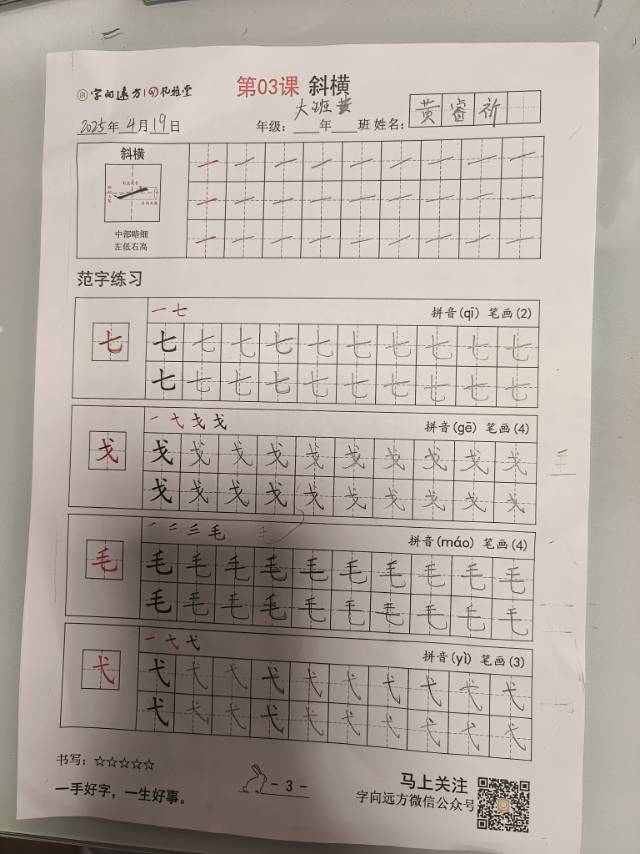 字向远方 孔雅堂
第03课 斜横
2025年4月19日
大班黄
年级：___年___班 姓名：黄睿祈
斜横
中部略细
左低右高
范字练习
一 七
拼音(qī) 笔画(2)
七 七 七 七 七 七 七 七 七 七 七
七 七 七 七 七 七 七 七 七 七
一 弋 戈 戈
拼音(gē) 笔画(4)
戈 戈 戈 戈 戈 戈 戈 戈 戈 戈 戈
戈 戈 戈 戈 戈 戈 戈 戈 戈 戈
一 二 三 毛
拼音(máo) 笔画(4)
毛 毛 毛 毛 毛 毛 毛 毛 毛 毛 毛
毛 毛 毛 毛 毛 毛 毛 毛 毛 毛
一 七 弋
拼音(yì) 笔画(3)
弋 弋 弋 弋 弋 弋 弋 弋 弋 弋 弋
弋 弋 弋 弋 弋 弋 弋 弋 弋 弋
书写：☆☆☆☆☆
一手好字，一生好事。
- 3 -
马上关注
字向远方微信公众号